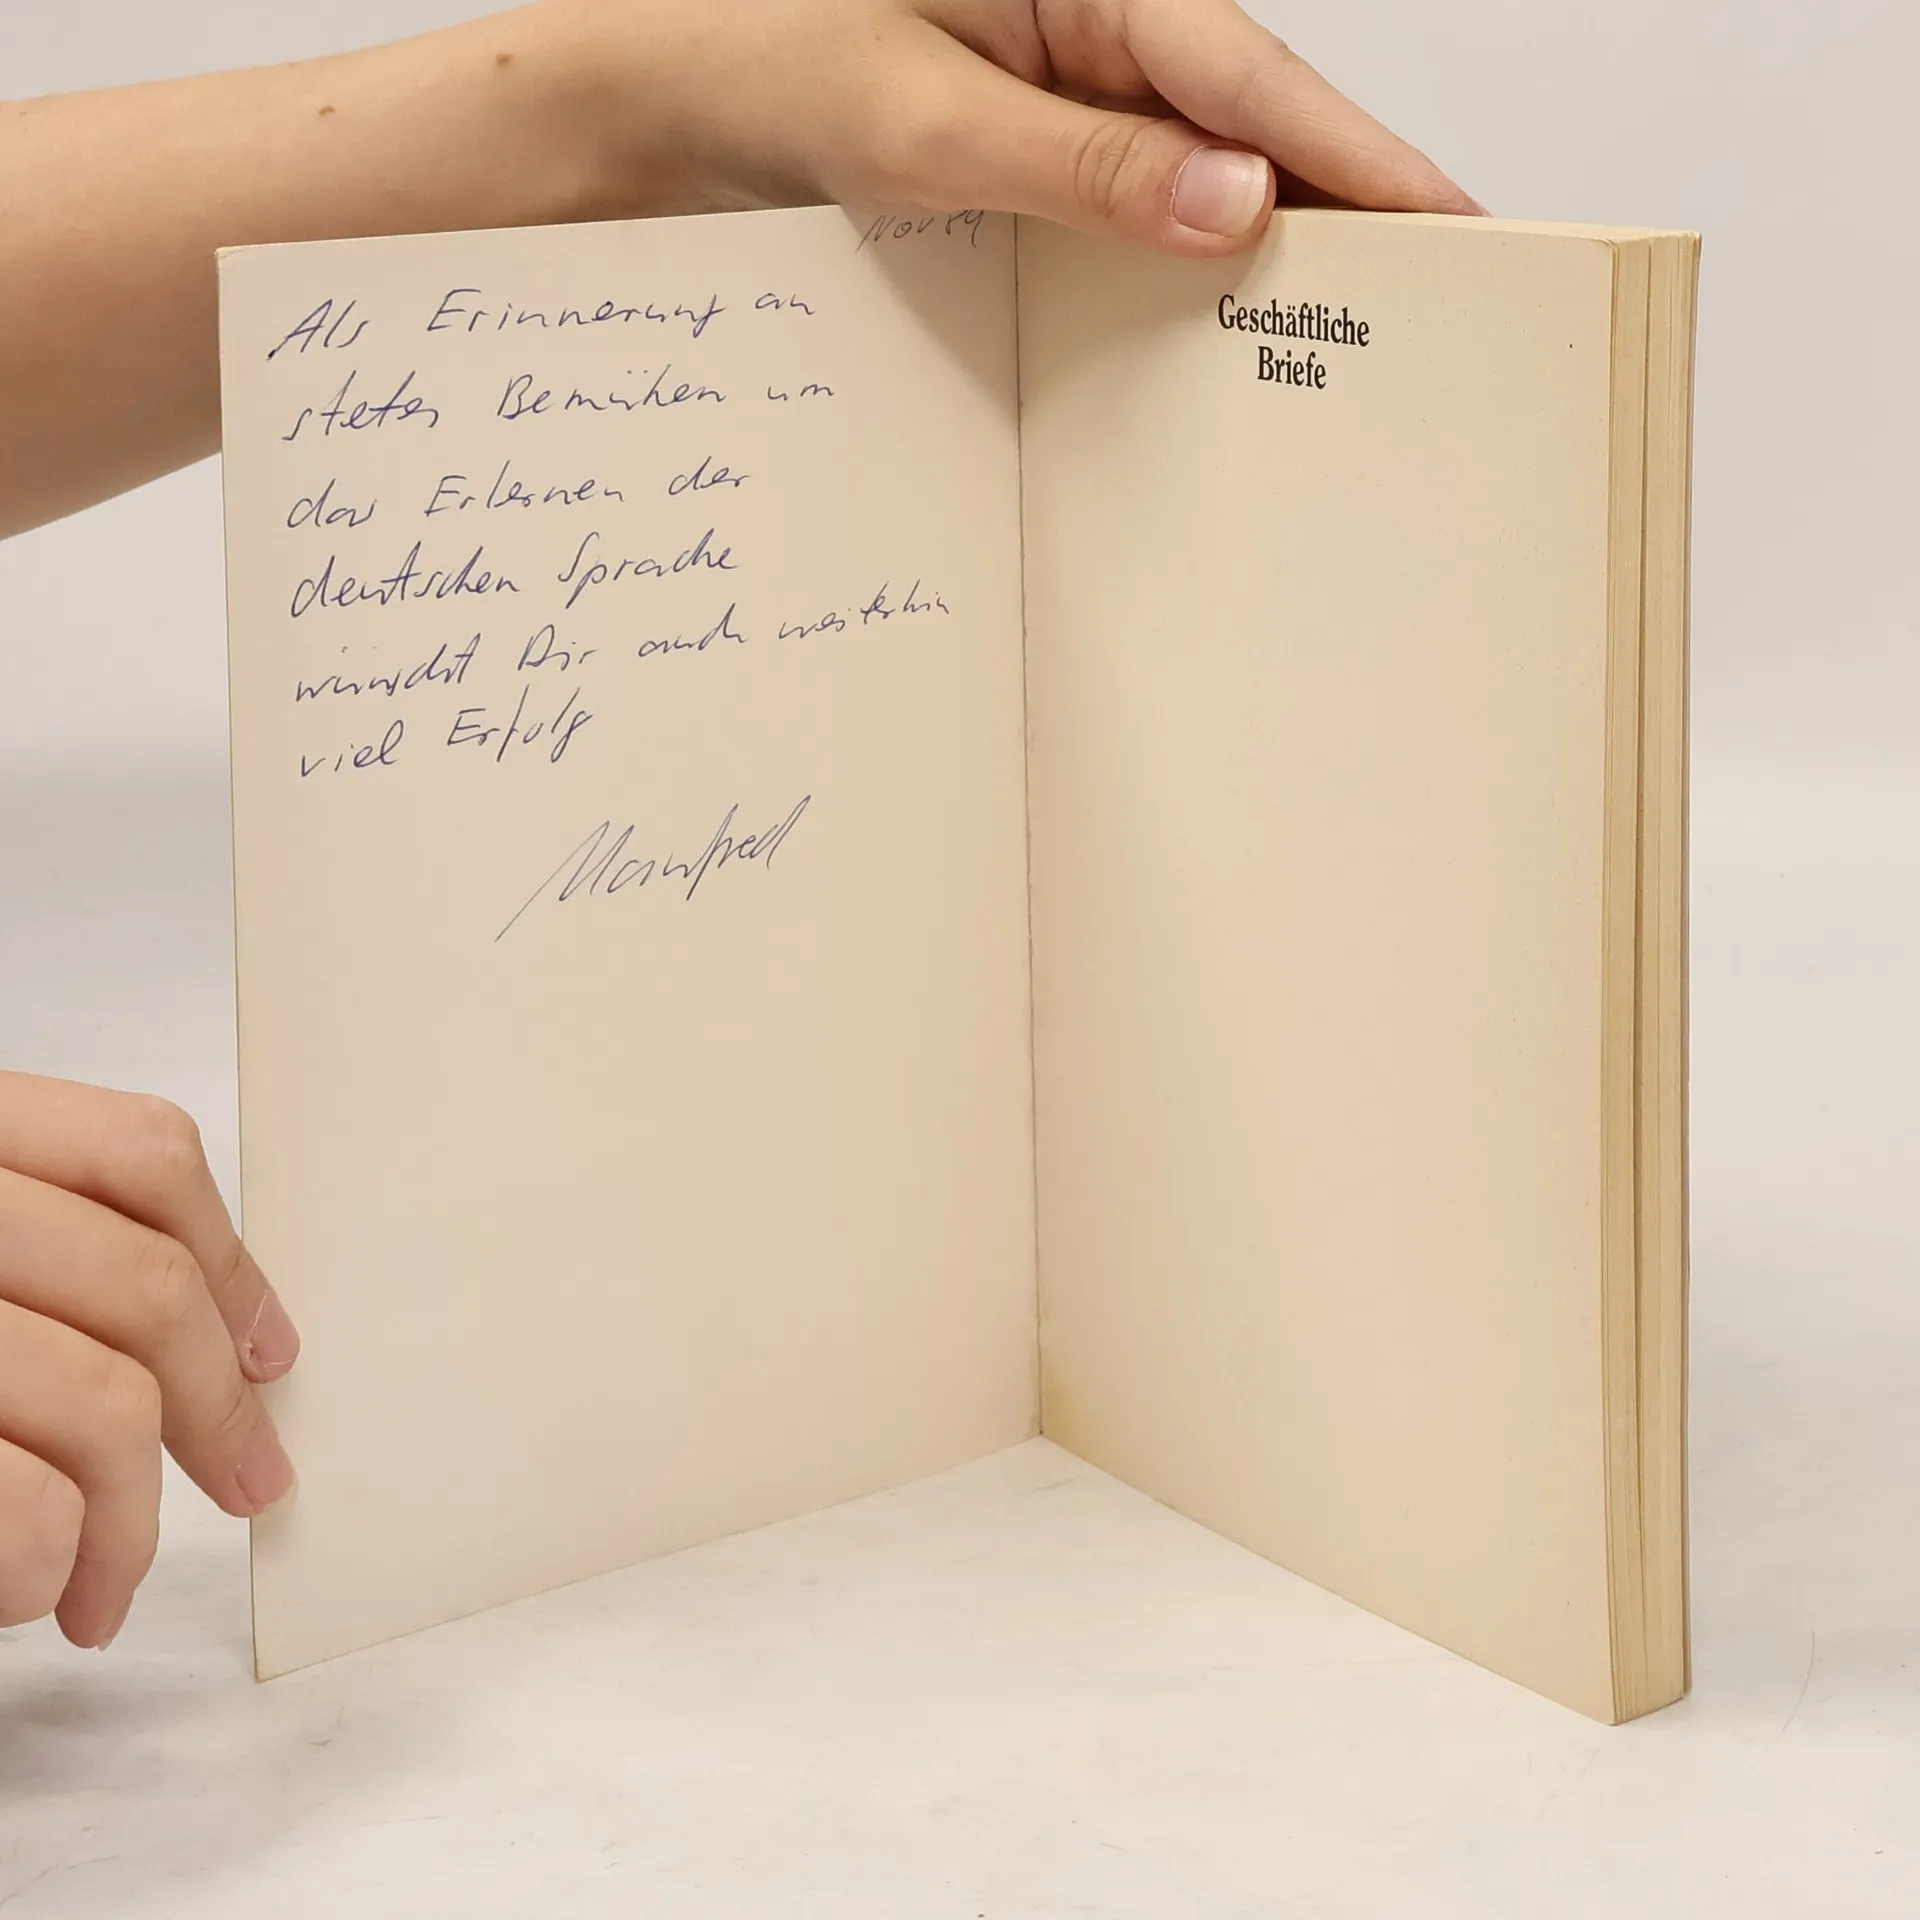 Nov 89
Als Erinnerung an
stetes Bemühen um
das Erlernen der
deutschen Sprache
wünscht Dir auch weiterhin
viel Erfolg
Manfred
Geschäftliche
Briefe